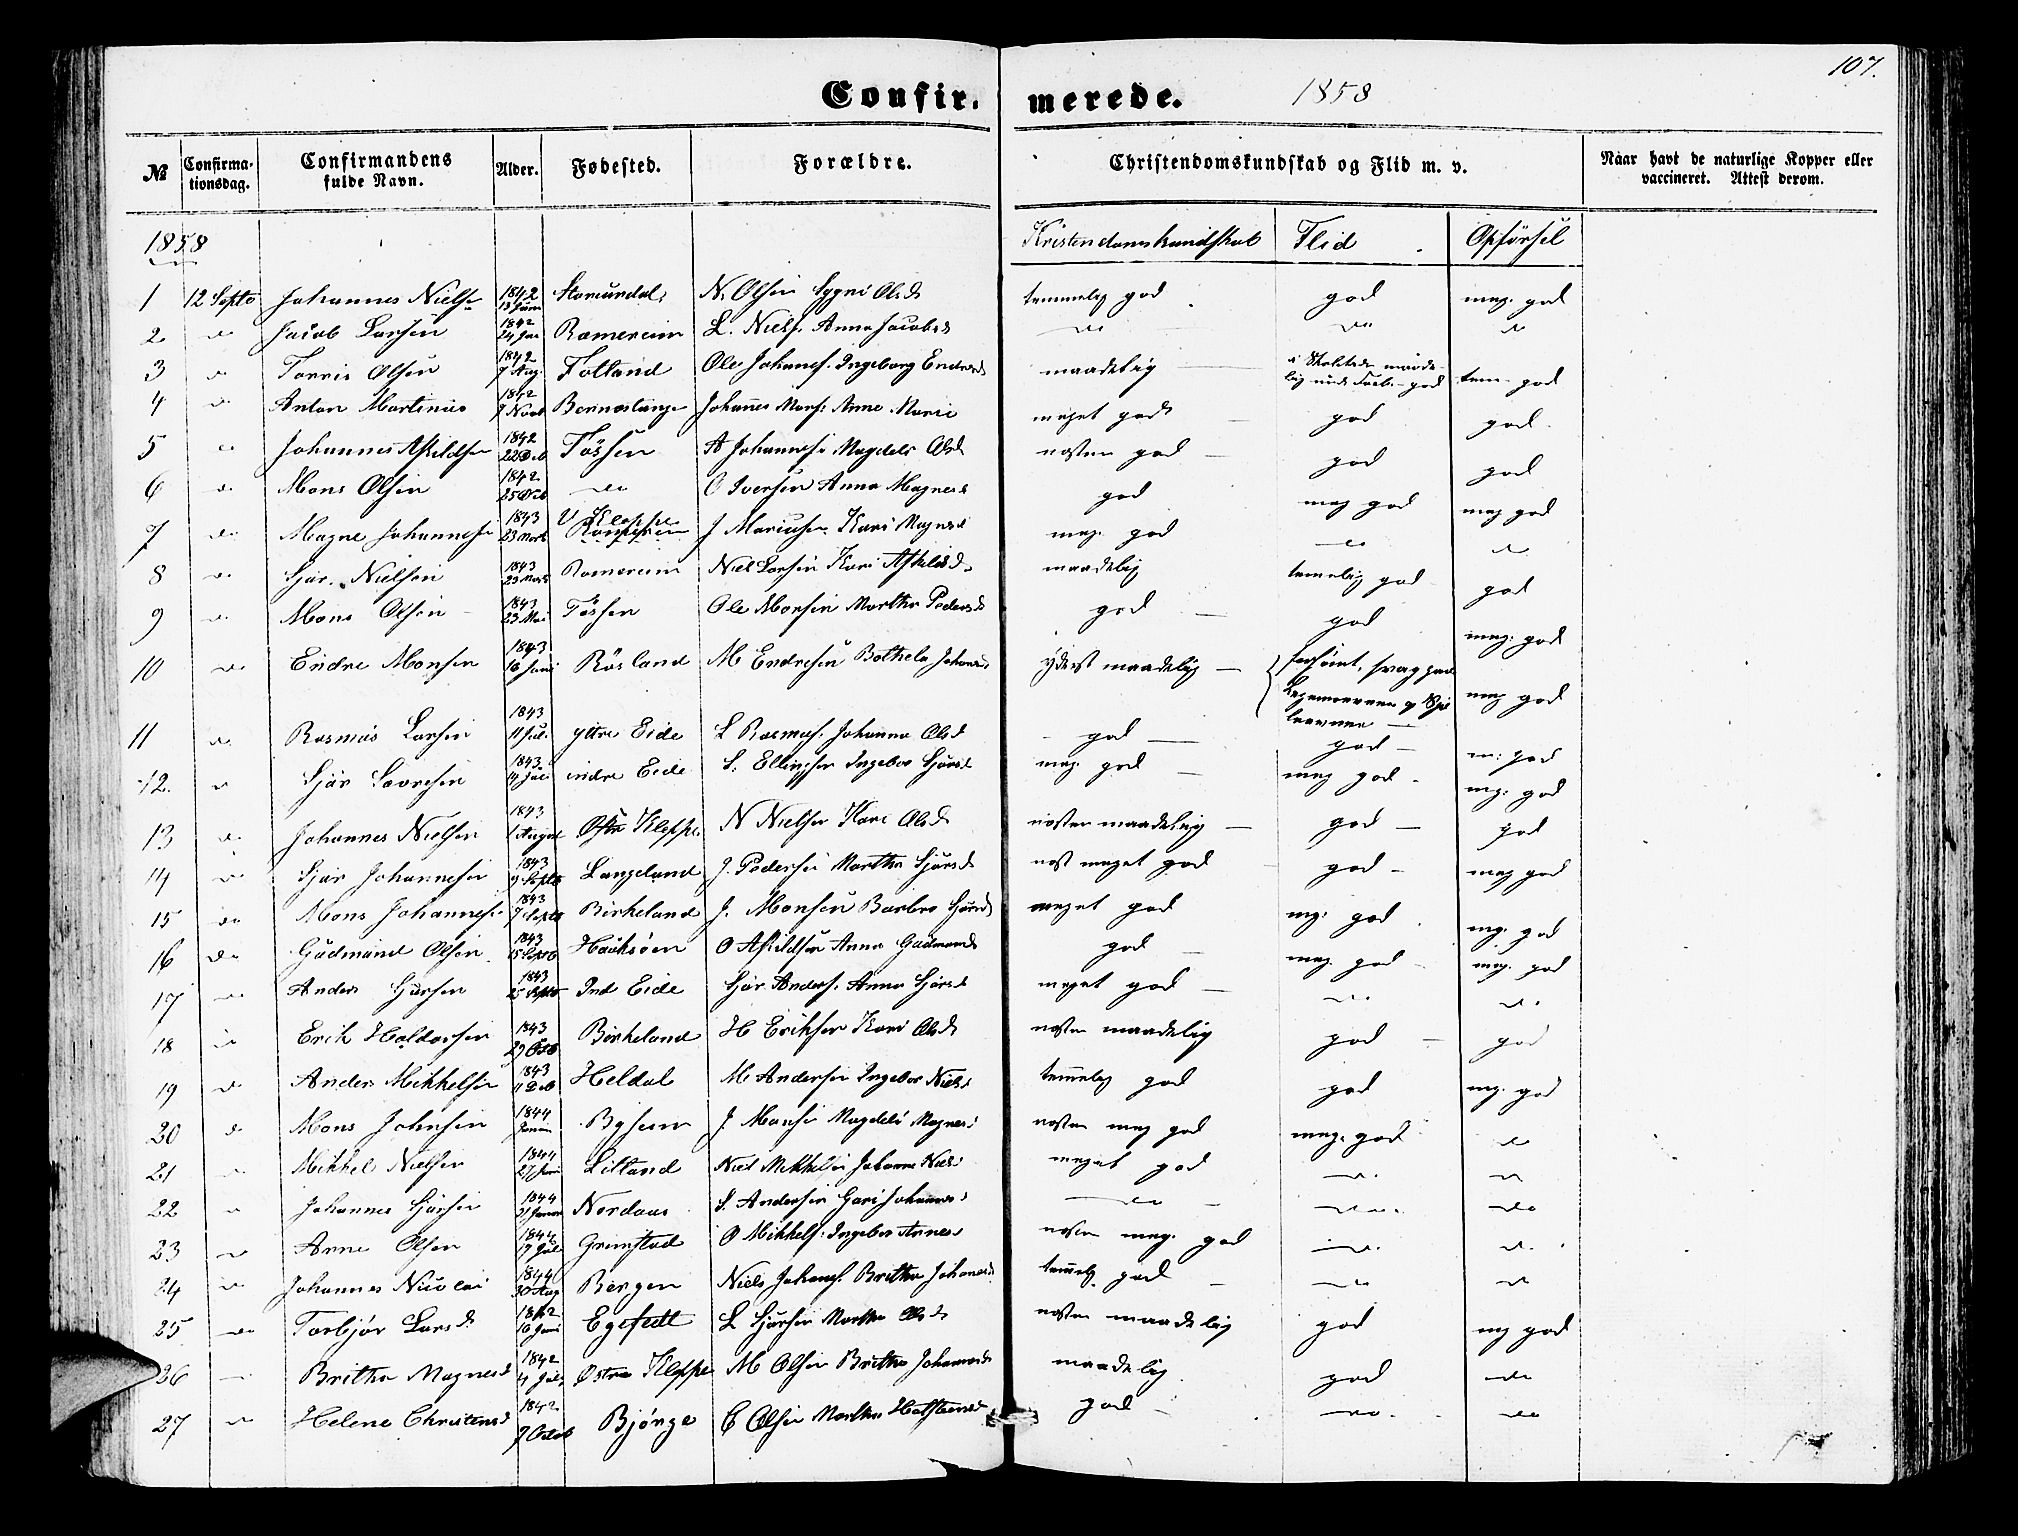 107.
Confir- merede. 1858
No Confirma-tionsdag. Confirmandens fulde Navn. Alder. Fødested. Forældre. Christendomskundskab og Flid m. v. Naar havt de naturlige Kopper eller vaccineret. Attest derom.
1858 Kristendomskundskab Flid Opførsel
1 12 Septb Johannes Nielse 1842 N. Olsen Sygni Olsd temmelig god god meg. god
2 do Jacob Larsen 1842 24 Jan Romereim L. Niels. Anna Jacobsd do do do
3 do Torris Olsen 1842 7 Aug Fotland Ole Johannes. Ingeborg Endresd maadelig tem. god
4 do Anton Martinus 1842 7 Novb Johannes Mons. Anne Marie meget godt god god
5 do Johannes Askildsen 1842 22 Deb Tössen A Johannesen Magdele Olsd næsten god god god
6 do Mons Olsen 1842 do O Iversen Anna Magnesd god meg god meg god
7 do Magne Johannesen 1843 23 Marts J Kari Magnesd meg. god do do
8 do Sjur Nielsen 1843 23 Marts Romereim Niel Larsen Kari Askildsd maadelig temelig god god
9 do Mons Olsen 1843 23 Mai Tössen Ole Monsen Martha Pedersd god god meg: god
10 do Endre Monsen 1843 16 Juni Rösland M Endresen Bothele Johannesd yderst maadelig meg god
11 do Rasmus Larsen 1843 11 Jul. yttre Eide L Rasmus. Johanna Olsd god god m: god
12. do Sjur Sjursen 1843 14 Juli indre Eide S. Ellingsen Ingebor Sjursd meg. god meg god meg: god
13 do Johannes Nielsen 1843 1 August Østr Kleppe N Nielsen Kari Olsd næsten maadelig god god
14 do Sjur Johannesen 1843 9 Septb Langeland J. Pedersen Martha Sjursd næst meget god god meg god
15 do Mons Johannes. 1843 7 Septb Birkeland J. Monsen Barbro Sjursd meget god meg: god meg. god
16 do Gudmund Olsen 1843 15 Septb Hauksöen O Askildsen Anna Gudmunds god meg. god meg. god
17 do Anders Sjursen 1843 25 Septb Ind Eide Sjur Anders. Anna Sjursd meget god do do
18 do Erik Haldorsen 1843 29 Octb Birkeland H Eriksen Kari Olsd næsten maadelig god god
19 do Anders Mikkelsen 1843 11 Deb Heldal M Andersen Ingebor Nielsd temmelig god god meg. god
20 do Mons Johnsen 1844 J. Monsen Magdeli Magnesd næsten meg god meg. god do
21 do Mikkel Nielsen 1844 Litland Niel Mikkelsen Johanna Nielsd meget god do do
22 do Johannes Sjursen 1844 Nordaas S. Andersen Guri Johannesd do do do
23 do Arne Olsen 1844 19 Jul Grimstad O Mikkels. Ingebor Arnesd næsten meg. god do do
24 do Johannes Nicolai 1844 30 Aug Bergen Niels Johannes. Britha Johannesd temmelig god do do
25 do Torbjör Larsd. 1842 16 Juni Egefedt L Sjursen Martha Olsd næsten maadelig god meg god
26 do Britha Magnesd 1842 4 Juli Østre Kleppe M Olsen Britha Johannesd maadelig god do
27 do Helene Christensd 1842 7 Octob Bjørge C Olsen Martha Halstensd god do do